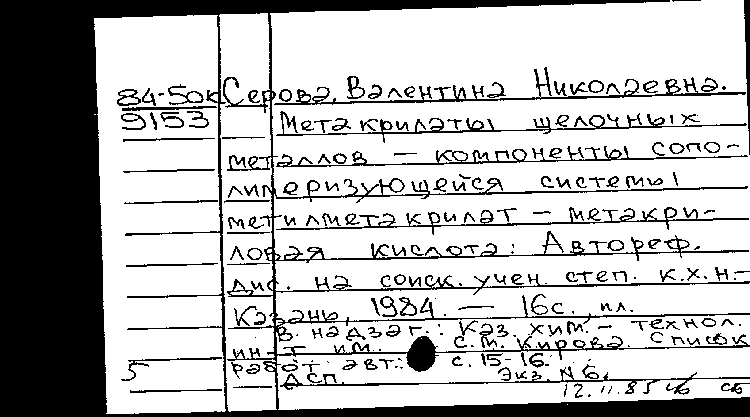 84-5ок Серова, Валентина Николаевна.
9153 Метакрилаты щелочных
металлов — компоненты сопо-
лимеризующейся системы
метилметакрилат — метакри-
ловая кислота: Автореф.
дис. на соиск. учен. степ. к.х.н.-
Казань, 1984. — 16с., ил.
В надзаг.: Каз. хим.- технол.
ин-т им. С.М. Кирова. Список
5 работ авт.: с. 15-16.
ДСП. Экз. №6.
12.11.85 сб